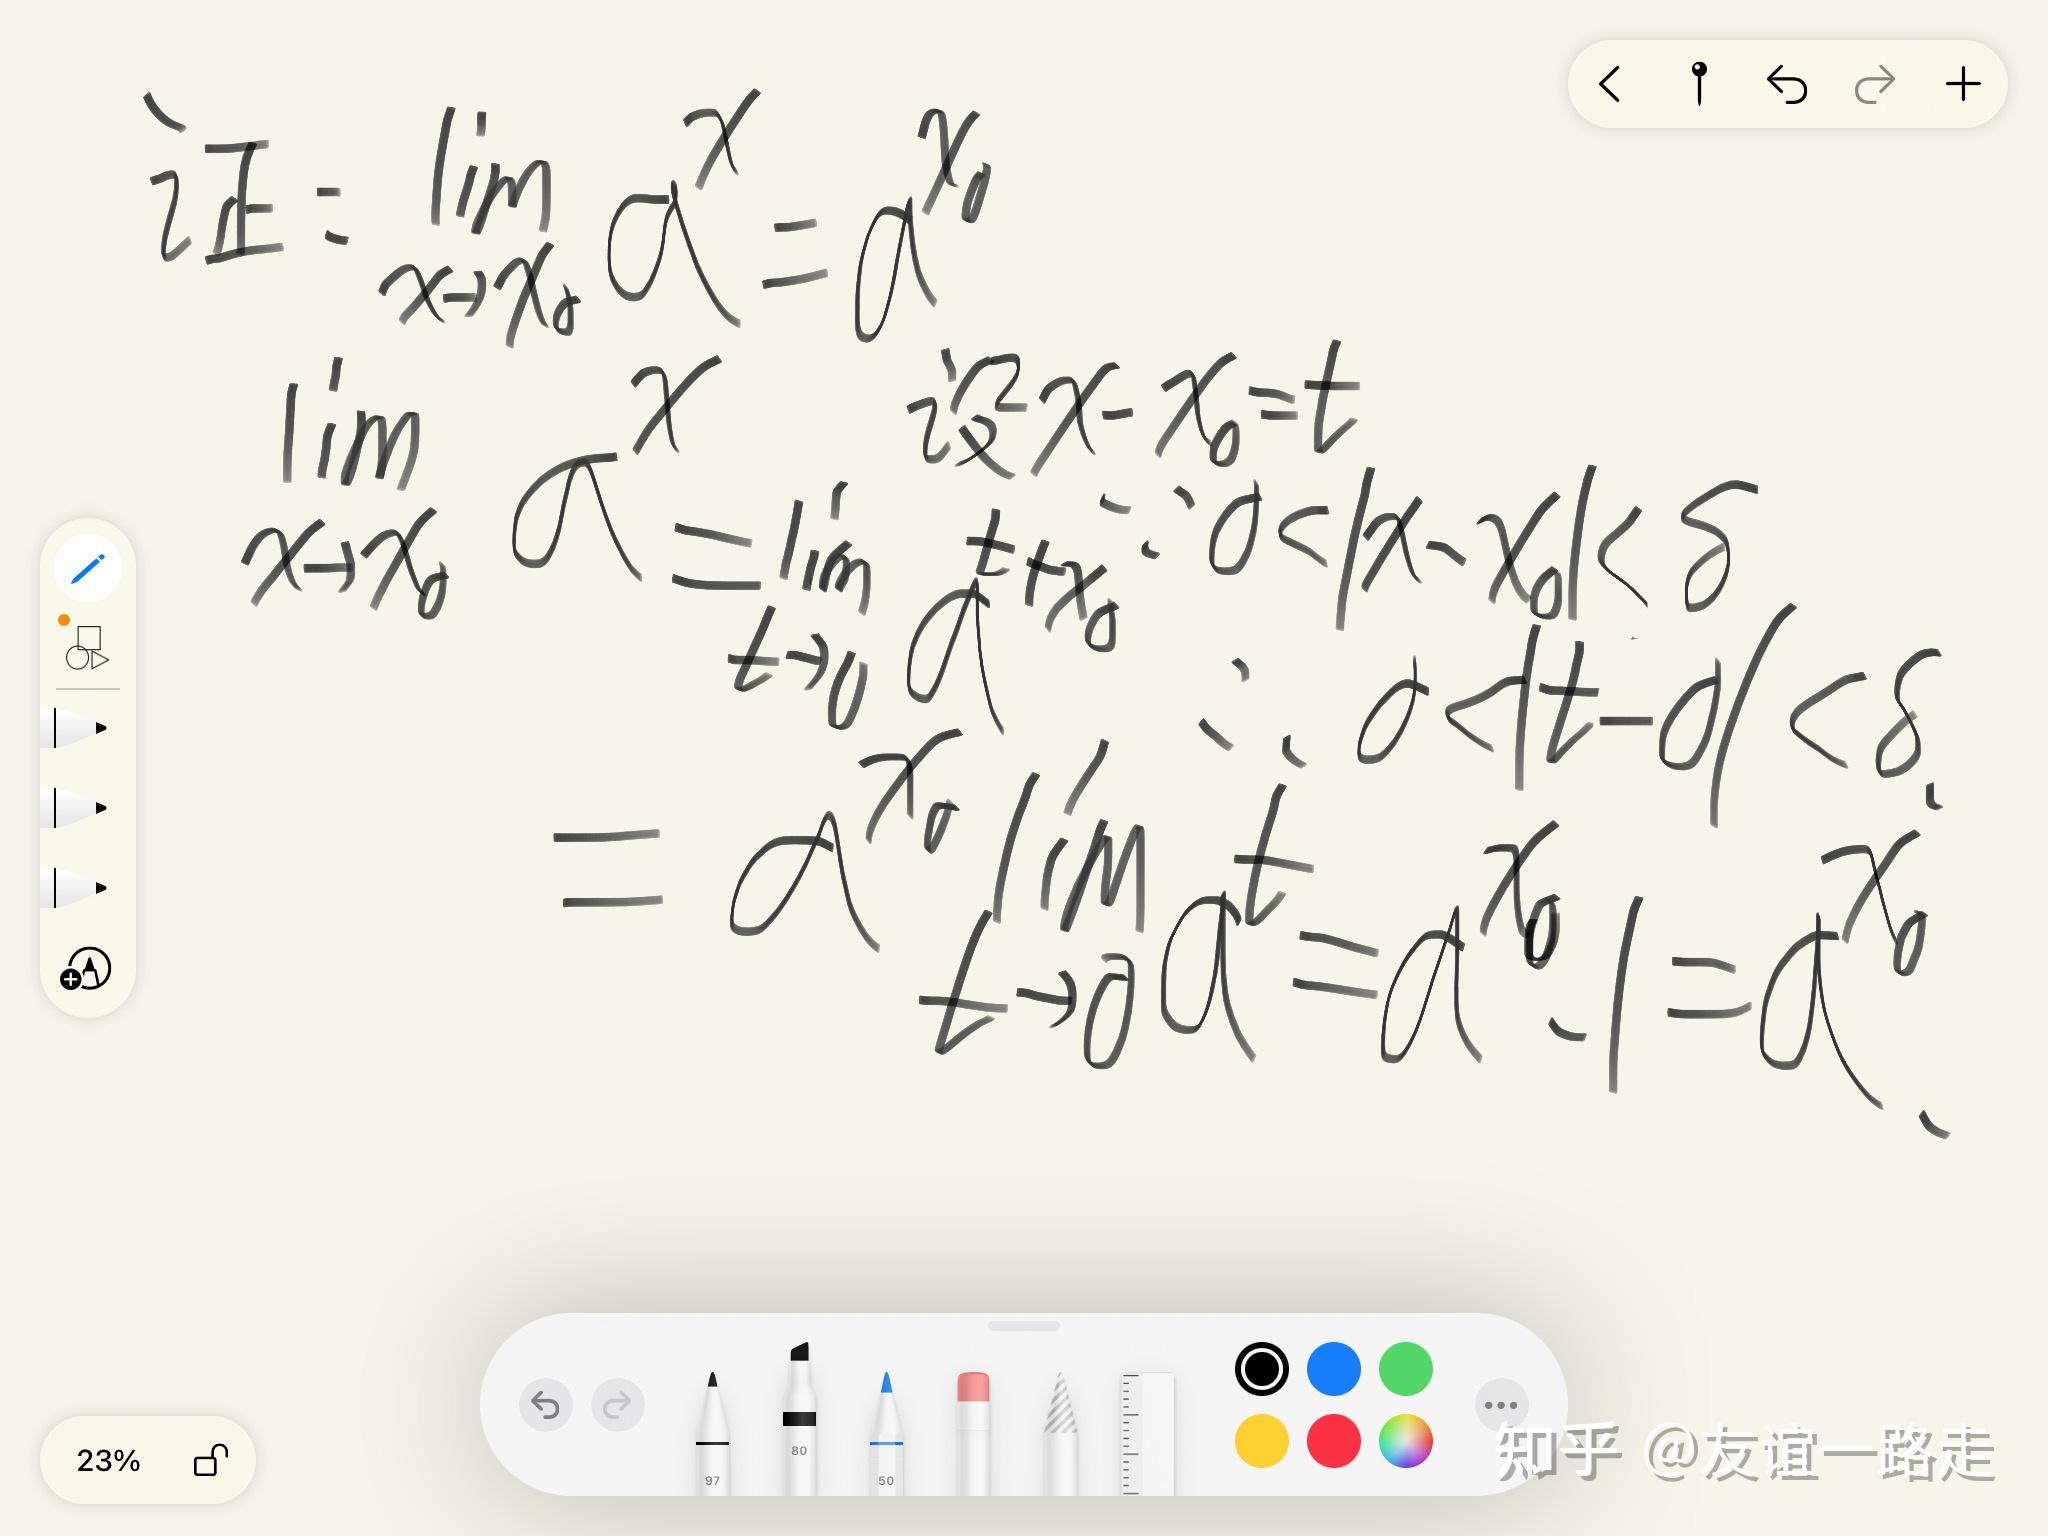 证: lim x→x₀ aˣ = aˣ⁰
lim x→x₀ aˣ 设x-x₀=t
= lim t→0 aᵗ⁺ˣ⁰ ∵ 0<|x-x₀|<δ
∴ 0<|t-0|<δ.
= aˣ⁰ lim t→0 aᵗ = aˣ⁰·1 = aˣ⁰.
97
80
50
23%
知乎 @友谊一路走